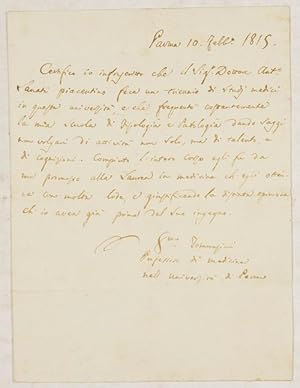 Parma 10. Febb.° 1815.
Certifico io infrascritto che il Sig.r Dottore Ant.°
piacentino fece un triennio di Studj medici
in questa università, e che frequentò costantemente
la mia Scuola di Fisiologia e Patologia dando saggi
non volgari di attività non solo, ma di talento, e
di cognizioni. Compiuto l'intero Corso egli fu da
me promosso alla Laurea in medicina che egli otten-
ne con molta lode, e giustificando la opinione
ch'io avea già prima del suo ingegno.
Tommasini
Professore di medicina
nell'università di Parma